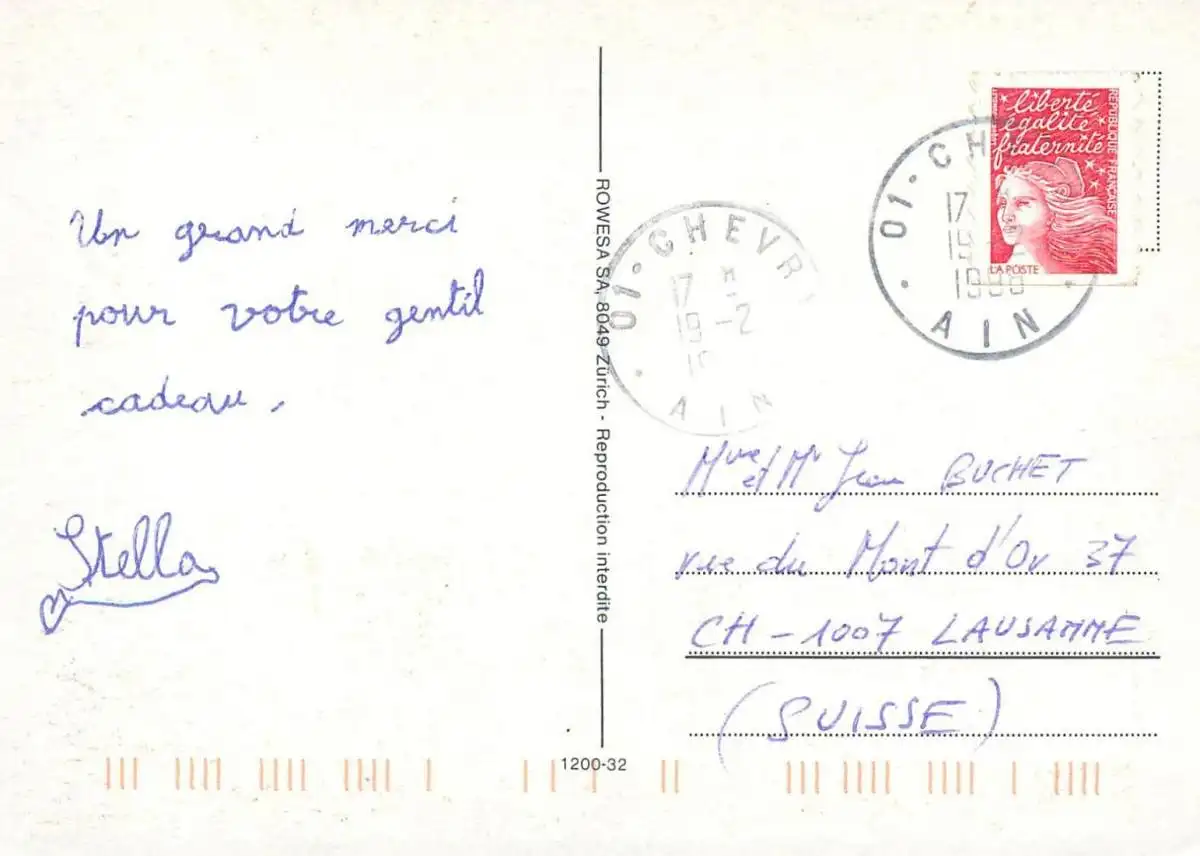 Un grand merci
pour votre gentil
cadeau.
Stella
ROWESA SA, 8049 Zürich - Reproduction interdite
1200-32
01 · CHEVR
17 H
19 -2
AIN
liberté
égalité
fraternité
RÉPUBLIQUE FRANÇAISE
LA POSTE
01 · CH
17
19
1998
AIN
Mme et Mr Jean BUCHET
rue du Mont d'Or 37
CH - 1007 LAUSANNE
(SUISSE)